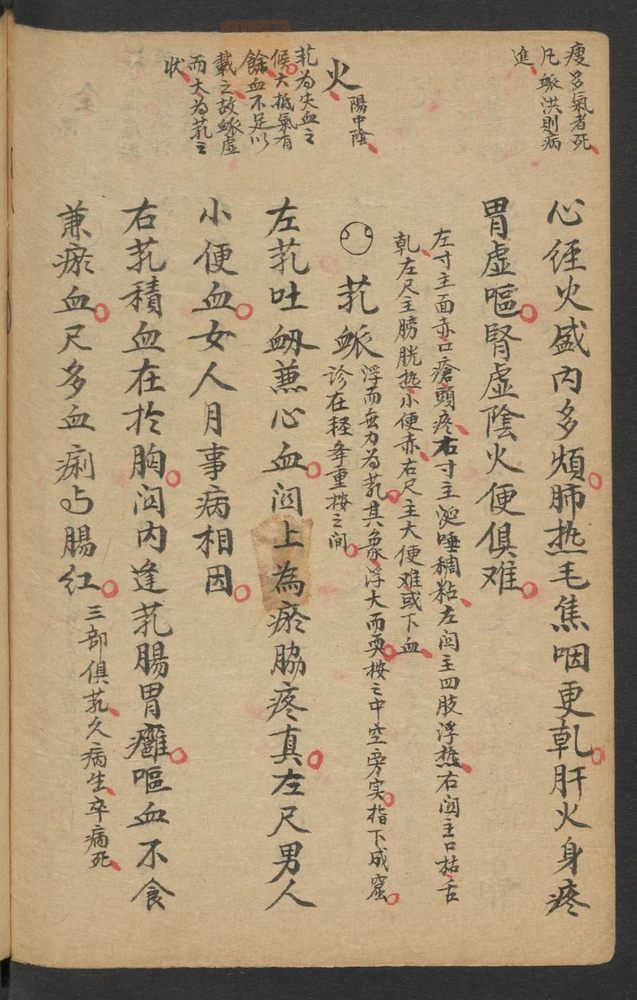 瘦多氣者死
凡脈洪則病
進
火
陽中陰
芤為失血之
候大抵氣有
餘血不足以
載之故脈虛
而大為芤之
狀
心経火盛內多煩肺热毛焦咽更乹肝火身疼
胃虛嘔腎虛陰火便俱难
左寸主面赤口瘡頭疼右寸主涎唾稠粘左関主四肢浮热右関主口枯舌
乹左尺主膀胱热小便赤右尺主大便难或下血
芤脈
浮而無力為芤其象浮大而耎按之中空旁实指下成窟
診在軽舉重按之间
左芤吐衂蒹心血関上為瘀脇疼真左尺男人
小便血女人月事病相因
右芤積血在於胸関內逢芤腸胃癰嘔血不食
兼瘀血尺多血痢与腸红
三部俱芤久病生卒病死